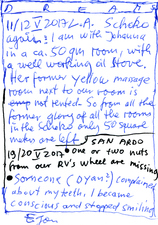 D R E A M S
11/12 V 2017 L.A. Scheko
again? I am with Johenna
in a ca. 50 qm room, with
a well working oil stove.
Her former yellow massage
room next to our room is
not tented. So from all the
former glory of all the rooms
in the Scheko only 50 square
meters are left
SAN ARDO
19/20 V 2017 • one or two nuts
from our RV's wheel are missing
• Someone (Oyan?) complained
about my teeth. I became
conscious and stopped smiling